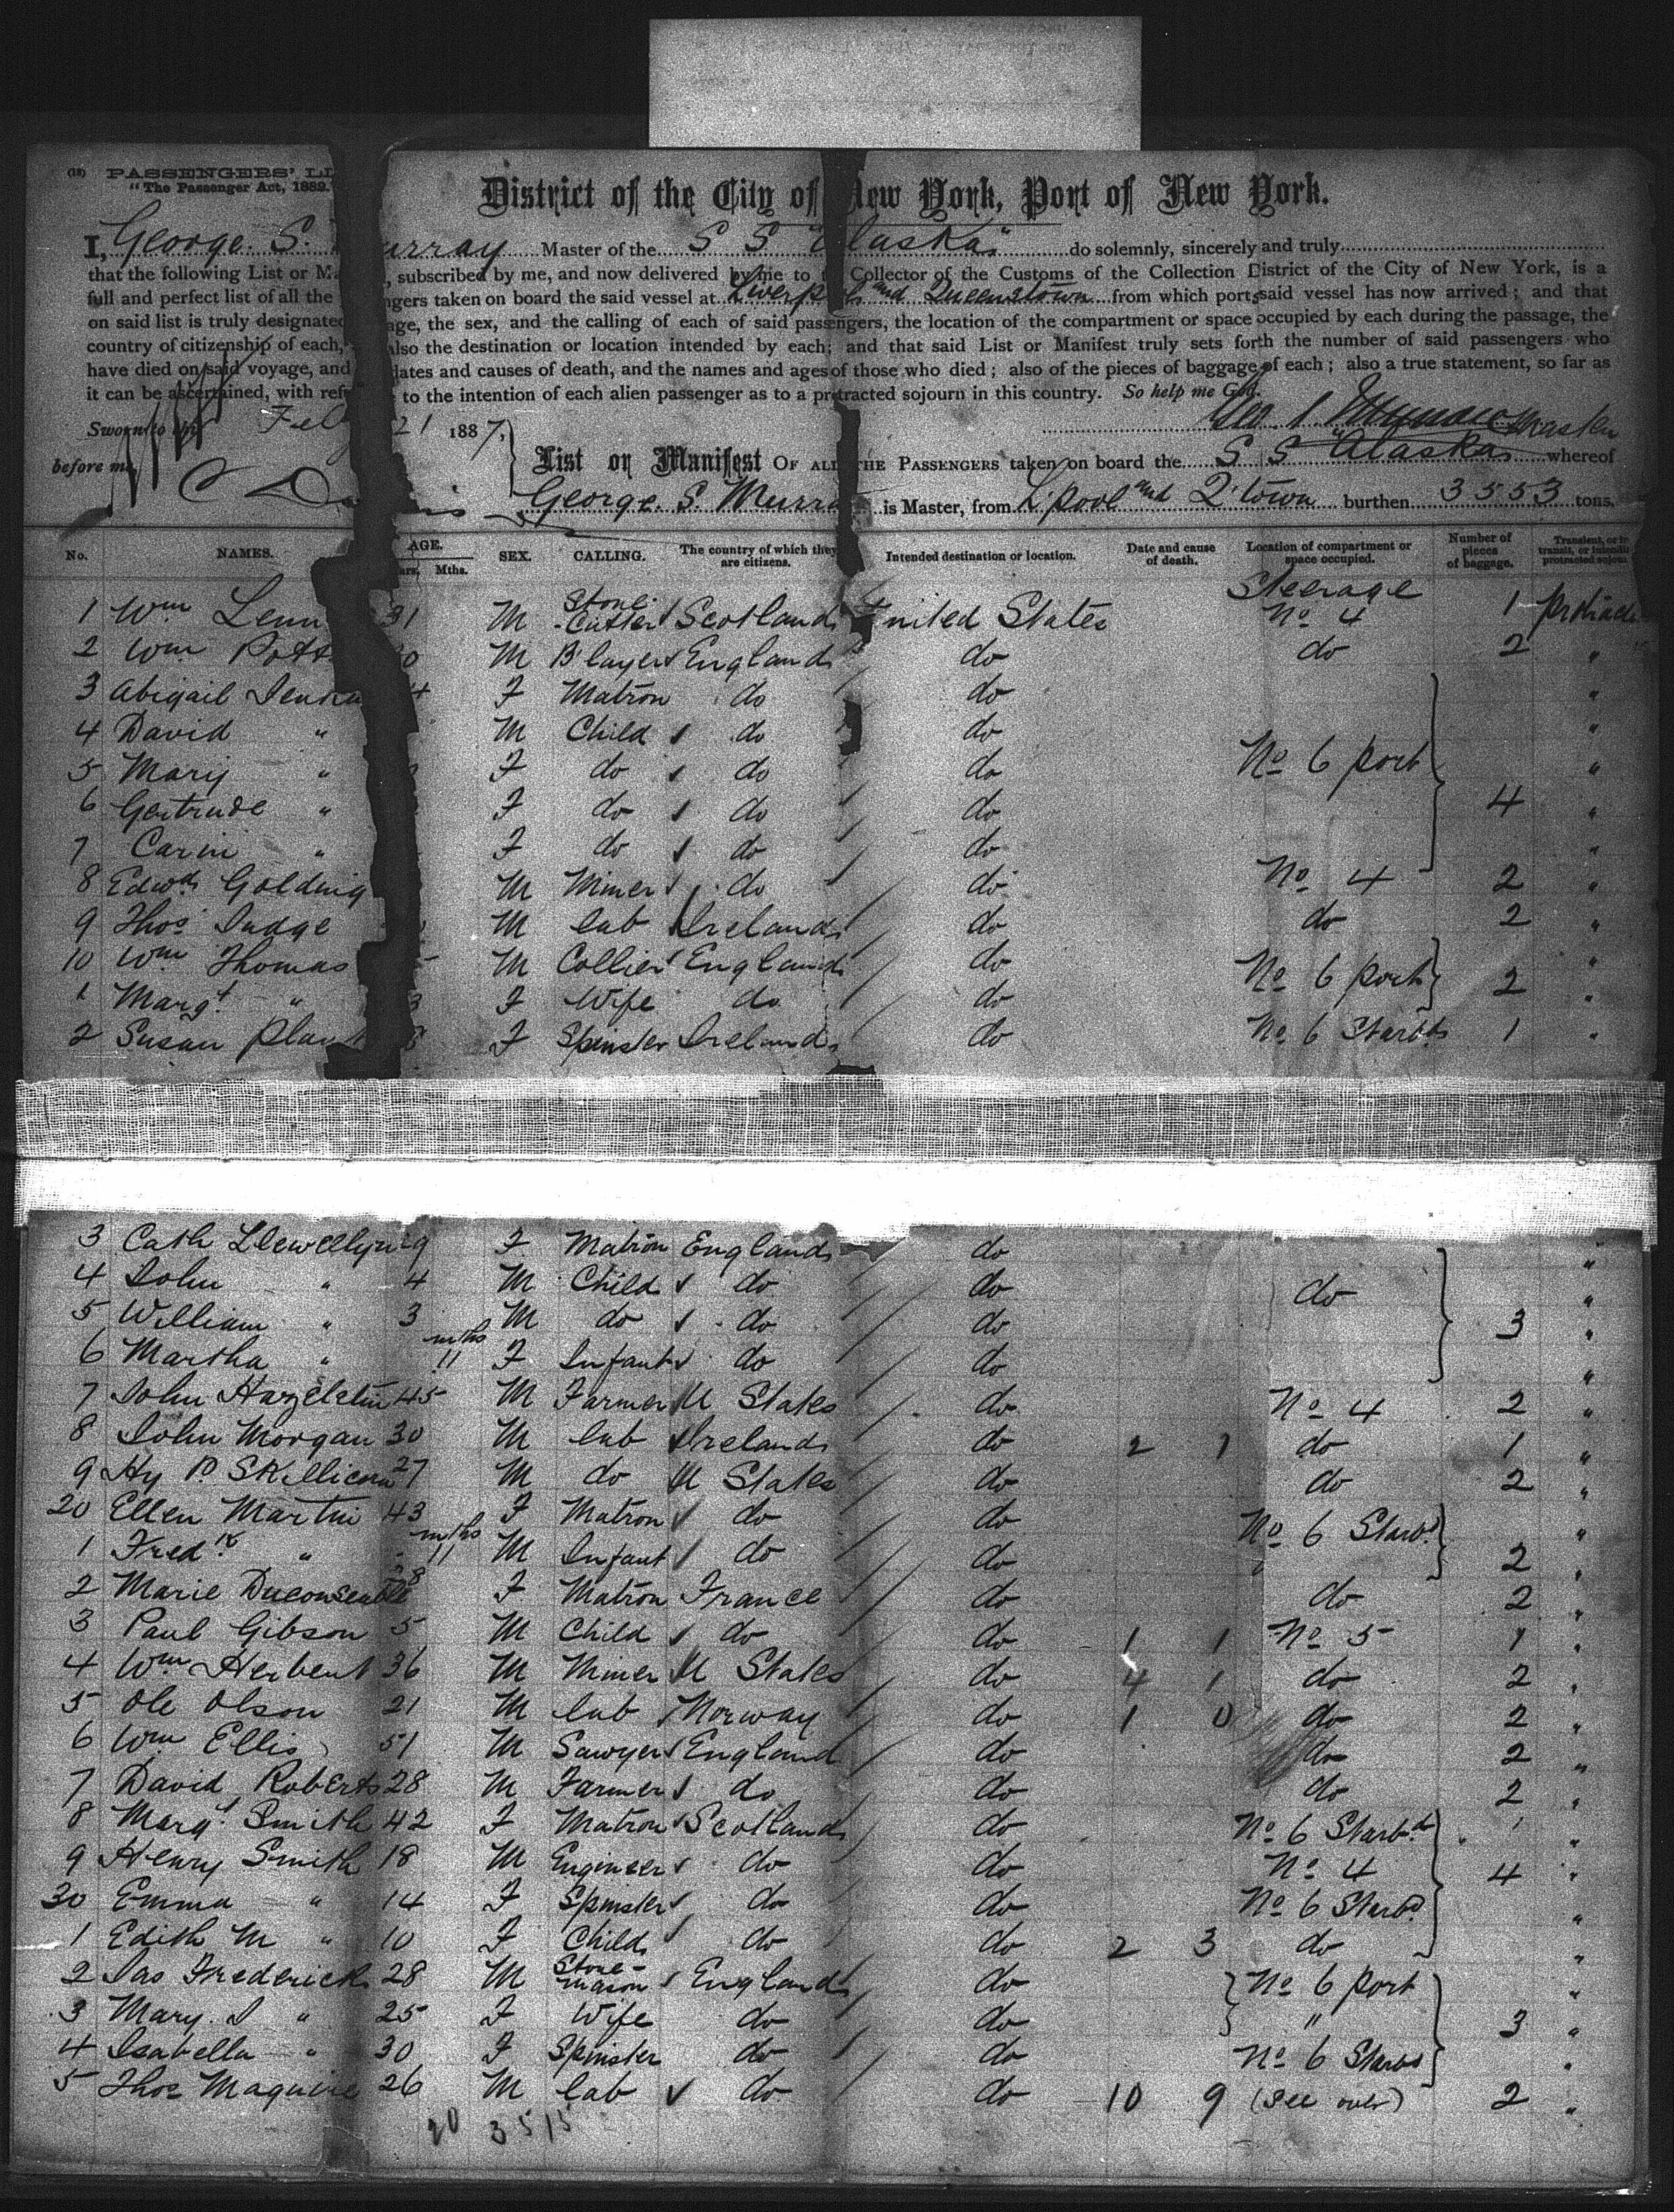 (18) PASSENGERS' LI
"The Passenger Act, 1882."
District of the City of New York, Port of New York.
I, George. S. Murray Master of the S S "Alaska" do solemnly, sincerely and truly
that the following List or Ma , subscribed by me, and now delivered by me to t Collector of the Customs of the Collection District of the City of New York, is a
full and perfect list of all the ngers taken on board the said vessel at Liverpool and Queenstown from which ports said vessel has now arrived; and that
on said list is truly designated age, the sex, and the calling of each of said passengers, the location of the compartment or space occupied by each during the passage, the
country of citizenship of each, also the destination or location intended by each; and that said List or Manifest truly sets forth the number of said passengers who
have died on said voyage, and dates and causes of death, and the names and ages of those who died; also of the pieces of baggage of each; also a true statement, so far as
it can be ascertained, with refe to the intention of each alien passenger as to a protracted sojourn in this country. So help me God.
Sworn to this Feb 21 1887, Geo S Murray Master
before me
List or Manifest OF ALL THE PASSENGERS taken on board the S S "Alaska" whereof
George. S. Murra is Master, from L'pool and Q'town burthen 3553 tons.
No. NAMES. AGE. Years, Mths. SEX. CALLING. The country of which they are citizens. Intended destination or location. Date and cause of death. Location of compartment or space occupied. Number of pieces of baggage. Transient, or in transit, or intending protracted sojourn
1 Wm Lenn 31 M Stone-Cutter Scotland United States Steerage No 4 1 protrac
2 Wm Potts 0 M B'layer England do do 2 "
3 Abigail Jenki 4 F Matron do do "
4 David " M Child do do "
5 Mary " F do do do No 6 port "
6 Gertrude " F do do do 4 "
7 Carin " F do do do "
8 Edwd Golding M Miner do do No 4 2 "
9 Thos Judge M lab Ireland do do 2 "
10 Wm Thomas 5 M Collier England do No 6 port 2 "
1 Margt " 3 F Wife do do "
2 Susan Plan 8 F Spinster Ireland do No 6 Starbd 1 "
3 Cath Llewellyn 29 F Matron England do "
4 John " 4 M Child do do do "
5 William " 3 M do do do 3 "
6 Martha " mths 11 F Infant do do "
7 John 45 M Farmer U States do No 4 2 "
8 John Morgan 30 M lab Ireland do 2 1 do 1 "
9 Hy 27 M do U States do do 2 "
20 Ellen Martin 43 F Matron do do No 6 Starbd "
1 Fredk " mths 11 M Infant do do 2 "
2 Marie 28 F Matron France do do 2 "
3 Paul Gibson 5 M Child do do 1 1 No 5 1 "
4 Wm Herbert 36 M Miner U States do 4 1 do 2 "
5 Ole Olson 21 M lab Norway do 1 0 do 2 "
6 Wm Ellis 51 M Sawyer England do do 2 "
7 David Roberts 28 M Farmer do do do 2 "
8 Margt Smith 42 F Matron Scotland do No 6 Starbd "
9 Henry Smith 18 M Engineer do do No 4 4 "
30 Emma " 14 F Spinster do do No 6 Starbd "
1 Edith M " 10 F Child do do 2 3 do "
2 Jas Frederick 28 M Stone-mason England do No 6 port "
3 Mary. J " 25 F Wife do do " 3 "
4 Isabella " 30 F Spinster do do No 6 Starbd "
5 Thos Maguire 26 M lab do do 10 9 (See over) 2 "
20 3515